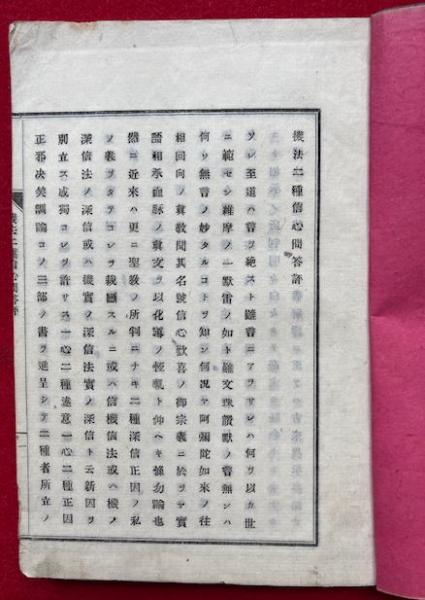 機法二種信心問答評
ソレ至道ハ言ヲ絶スト雖言ニアラザレハ何ヲ以カ世
ニ範セン維摩ノ一默雷ノ如ト雖文珠讃默ノ言無ンハ
何ソ無言ノ妙タルコトヲ知ン何況ヤ阿彌陀如來ノ往
相回向ノ眞敎聞其名號信心歡喜ノ御宗義ニ於ヲヤ實
語相承血脉ノ眞文ヲ以化導ノ恆軌ト仰ヘキ條勿論也
然ニ近來ハ更ニ聖敎ノ所判ニナキ二種深信正因ノ私
ノ義ヲタテコレヲ裁スルニ或ハ信機信法或ハ機ノ
深信法ノ深信或ハ機實ノ深信法實ノ深信ト云新因ヲ
別立ス或獨コレヲ許リス一心二種違意一心二種正因
正邪决矣諷諭コノ三部ノ書ヲ進呈シテ二種者所立ノ